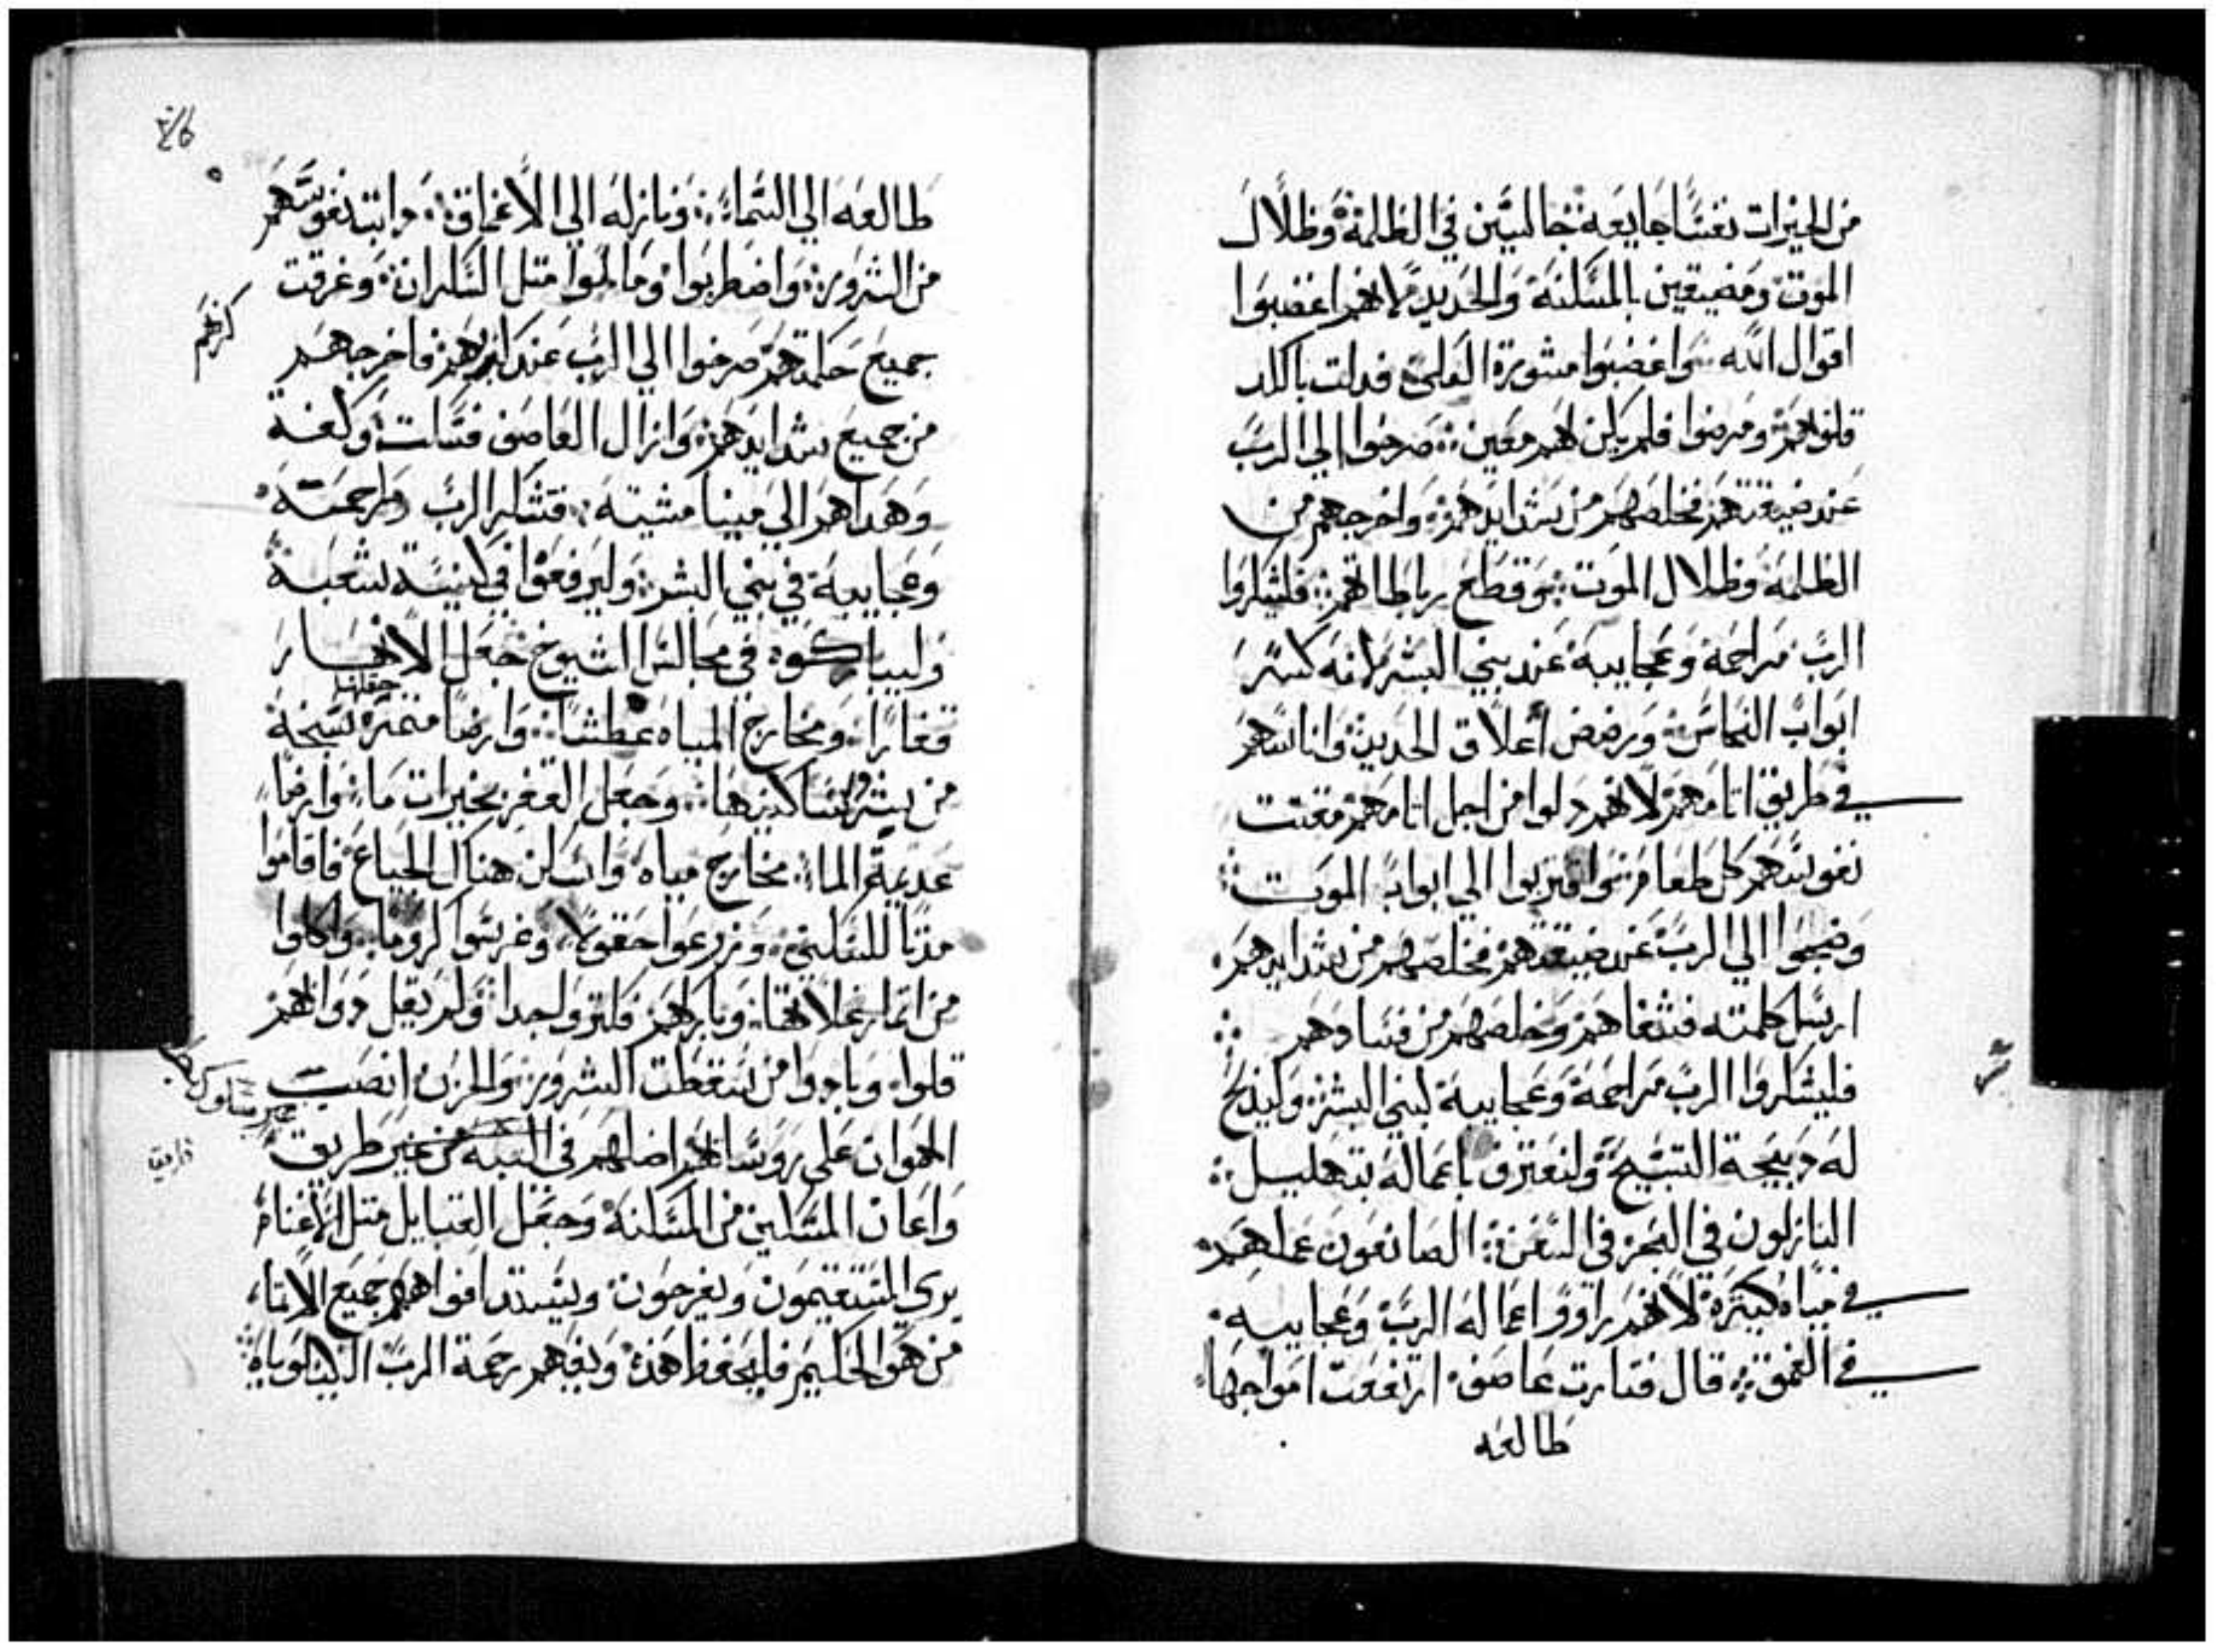 من الخيرات نفسًا جايعه جالسين في الظلمة وظلال
الموت ومضيقين بالمسكنة والحديد لانهم اغضبوا
اقوال الله واغضبوا مشورة العلي فدلت بالكد
قلوبهم ومرضوا فلم يكن لهم معين صرخوا الي الرب
عند ضيقتهم فخلصهم من شدايدهم واخرجهم من
الظلمة وظلال الموت وقطع رباطاتهم فليشكروا
الرب مراحمة وعجايبة عند بني البشر لانه كسر
ابواب النحاس ورضض أغلاق الحديد واناسهم
في طريق اتامهم لانهم دلوا من اجل اتامهم مقتت
نفوسهم كل طعام واقتربوا الي ابواب الموت
وضجوا الي الرب عند ضيقتهم فخلصهم من شدايدهم
ارسل كلمته فشفاهم وخلصهم من فسادهم
فليشكروا الرب مراحمة وعجايبة لبني البشر وليذبح
له دبيحة التسبيح ولنعترف باعماله بتهليل
النازلون في البحر في السفن الصانعون عملهم
في مياه كثيرة لانهم راووا اعماله الرب وعجايبه
في العمق قال فتارت عاصف ارتفعت امواجها
طالعه
طالعه الي السماء ونازله الي الاعماق دابت نفوسهم
من الشرور واضطربوا ومالوا متل السكران وغرقت
جميع حكمتهم صرخوا الي الرب عند فاخرجهم
كربهم
من جميع شدايدهم وازال العاصف فسكت وكفه
وهداهم الي مينا مشيته فتشكر الرب مراحمته
وعجايبة في بني البشر وليرفعوا في كنيسة شعبة
وليباركوه في مجالس الشيوخ جعل الانهار
قفارًا ومخارج المياه عطشًا وارضًا متمرة سبخة
جعلها
من شرور ساكنيها وجعل القفر بحيرات ما وارضًا
عديمة الما مخارج مياه واسكن هناك الجياع فاقاموا
مدنًا للسكني وزرعوا حقولا وغرسوا كرومًا واكلوا
من اتمار غلاتها وباركهم فكتروا جدا ولم يقل دوابهم
قلوا وبادوا من سقطت الشرور والحزن انصب
الهوان علي روسا اضلهم في التيه من غير طريق
واعان المسكين من المسكنة وجعل القبايل متل الاغنام
يري المستقيمون ويفرحون ويستد افواههم جميع الاتما
من هو الحكيم فليحفظ هذه ويفهم رحمة الرب